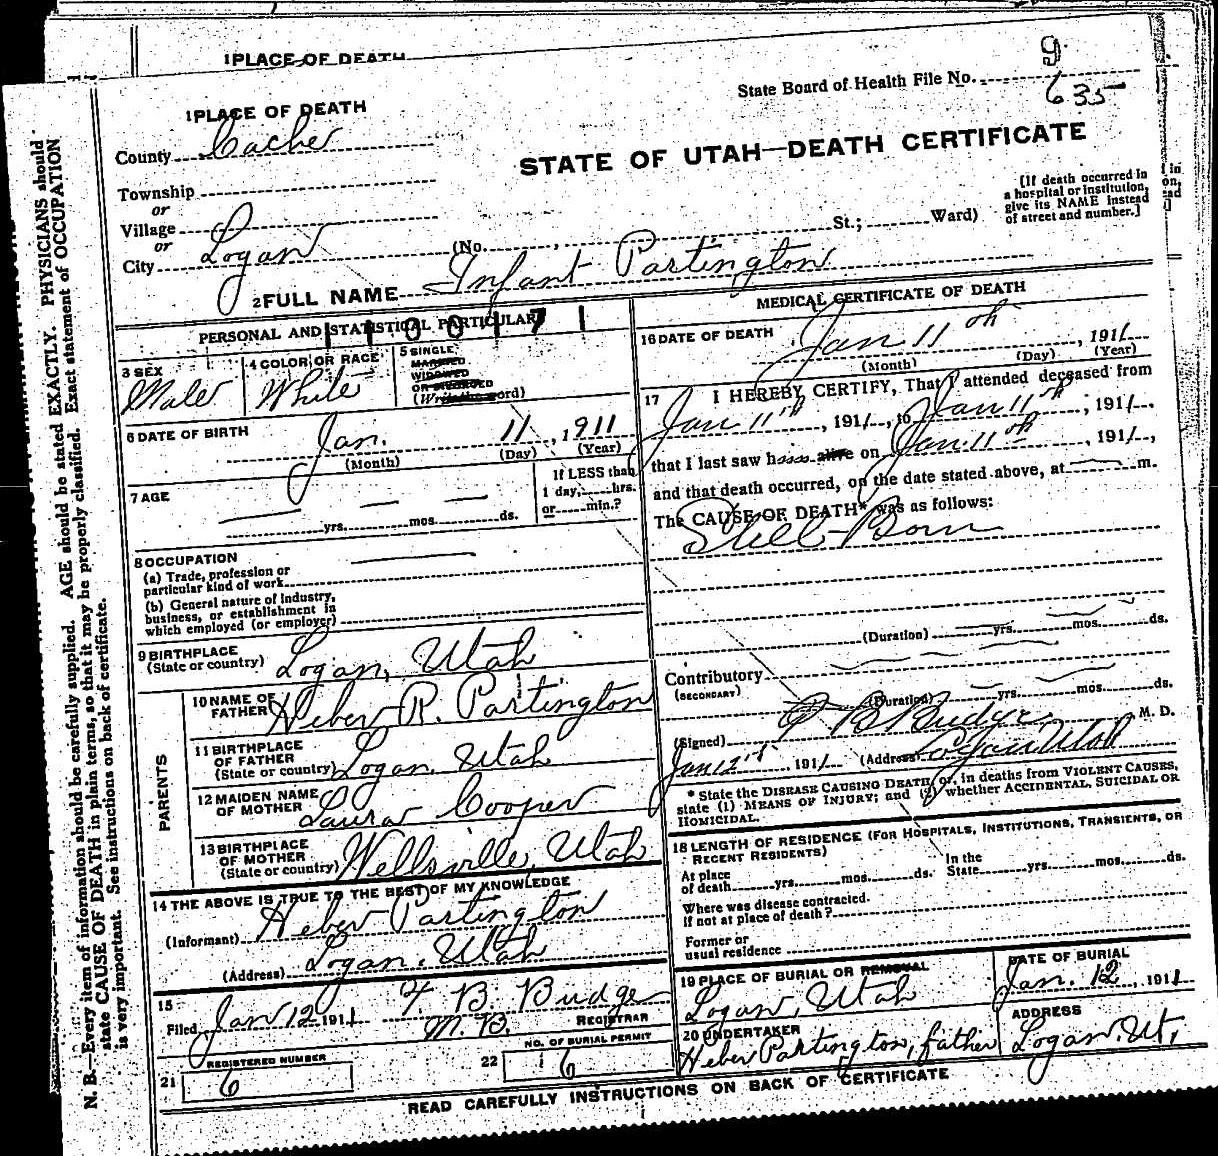 1 PLACE OF DEATH
State Board of Health File No. 9
635
1 PLACE OF DEATH
County Cache
STATE OF UTAH—DEATH CERTIFICATE
Township
or
Village
or
City Logan (No. , St.; Ward)
[If death occurred in
a hospital or institution,
give its NAME instead
of street and number.]
2 FULL NAME Infant Partington
PERSONAL AND STATISTICAL PARTICULARS
3 SEX
Male
4 COLOR OR RACE
White
5 SINGLE
MARRIED
WIDOWED
OR DIVORCED
(Write the word)
6 DATE OF BIRTH
Jan. 11, 1911
(Month) (Day) (Year)
7 AGE
yrs. mos. ds.
If LESS than
1 day, hrs.
or min.?
8 OCCUPATION
(a) Trade, profession or
particular kind of work
(b) General nature of industry,
business, or establishment in
which employed (or employer)
9 BIRTHPLACE
(State or country) Logan, Utah
PARENTS
10 NAME OF
FATHER Heber R. Partington
11 BIRTHPLACE
OF FATHER
(State or country) Logan, Utah
12 MAIDEN NAME
OF MOTHER Laura Cooper
13 BIRTHPLACE
OF MOTHER
(State or country) Wellsville, Utah
14 THE ABOVE IS TRUE TO THE BEST OF MY KNOWLEDGE
(Informant) Heber Partington
(Address) Logan, Utah
15
Filed Jan 12 1911 M. D. REGISTRAR
Budge
21 REGISTERED NUMBER
6
22 NO. OF BURIAL PERMIT
6
MEDICAL CERTIFICATE OF DEATH
16 DATE OF DEATH Jan 11th, 1911
(Month) (Day) (Year)
17 I HEREBY CERTIFY, That I attended deceased from
Jan 11th, 1911, to Jan 11th, 1911,
that I last saw h alive on Jan 11th, 1911,
and that death occurred, on the date stated above, at m.
The CAUSE OF DEATH* was as follows:
Still-Born
(Duration) yrs. mos. ds.
Contributory
(SECONDARY)
(Duration) yrs. mos. ds.
(Signed) Budge M. D.
Jan 12th, 1911 (Address) Logan Utah
* State the DISEASE CAUSING DEATH, or, in deaths from VIOLENT CAUSES,
state (1) MEANS OF INJURY; and (2) whether ACCIDENTAL, SUICIDAL OR
HOMICIDAL.
18 LENGTH OF RESIDENCE (FOR HOSPITALS, INSTITUTIONS, TRANSIENTS, OR
RECENT RESIDENTS)
At place
of death yrs. mos. ds.
In the
State yrs. mos. ds.
Where was disease contracted.
if not at place of death?
Former or
usual residence
19 PLACE OF BURIAL OR REMOVAL
Logan, Utah
DATE OF BURIAL
Jan. 12, 1911
20 UNDERTAKER
Heber Partington, father
ADDRESS
Logan, Ut,
READ CAREFULLY INSTRUCTIONS ON BACK OF CERTIFICATE
N. B.—Every item of information should be carefully supplied. AGE should be stated EXACTLY. PHYSICIANS should
state CAUSE OF DEATH in plain terms, so that it may be properly classified. Exact statement of OCCUPATION
is very important. See instructions on back of certificate.